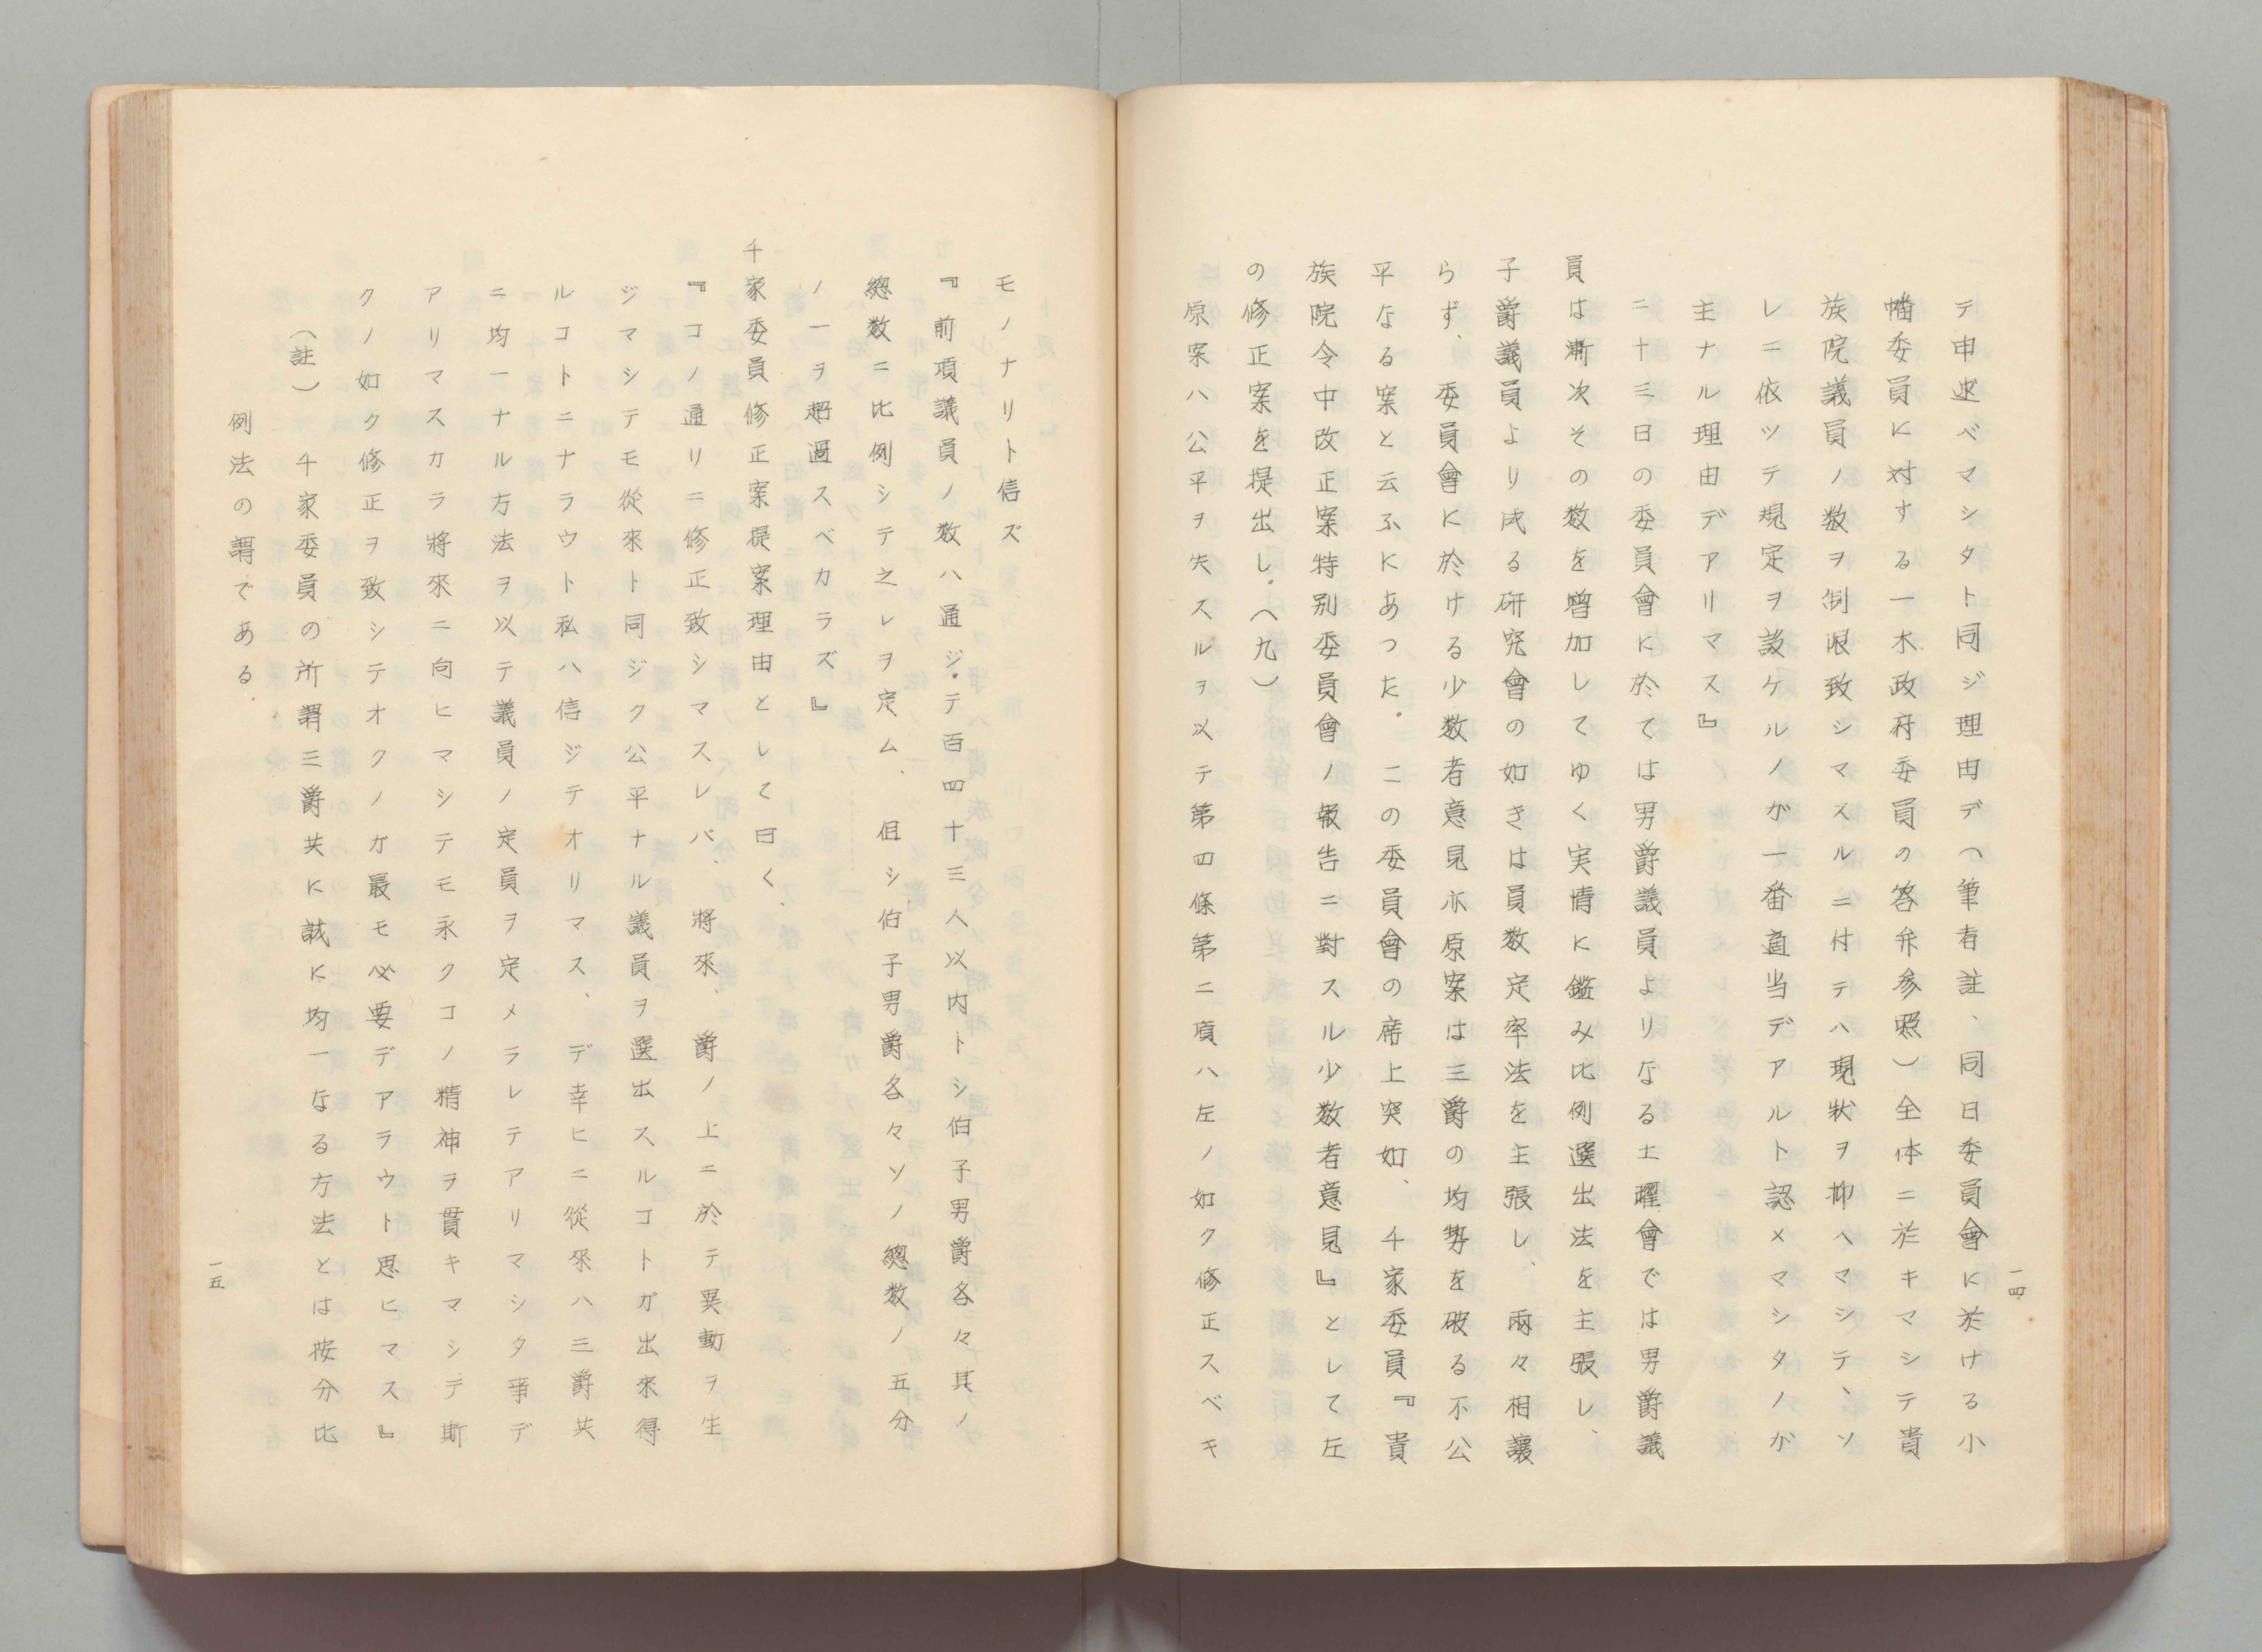 テ申述ベマシタト同ジ理由デ（筆者註、同日委員會に於ける小
幡委員に対する一木政府委員の答弁参照）全体ニ於キマシテ貴
族院議員ノ数ヲ制限致シマスルニ付テハ現状ヲ抑ヘマシテ、ソ
レニ依ツテ規定ヲ設ケルノガ一番適当デアルト認メマシタノガ
主ナル理由デアリマス』
二十三日の委員會に於ては男爵議員よりなる土曜會では男爵議
員は漸次その数を増加してゆく実情に鑑み比例選出法を主張し、
子爵議員より成る研究會の如きは員数定率法を主張し、両々相讓
らず、委員會に於ける少数者意見亦原案は三爵の均勢を破る不公
平なる案と云ふにあつた。この委員會の席上突如、千家委員『貴
族院令中改正案特別委員會ノ報告ニ對スル少数者意見』として左
の修正案を提出し。（九）
原案ハ公平ヲ失スルヲ以テ第四條第二項ハ左ノ如ク修正スベキ
一四
モノナリト信ズ
『前項議員ノ数ハ通ジテ百四十三人以内トシ伯子男爵各々其ノ
總数ニ比例シテ之レヲ定ム、但シ伯子男爵各々ソノ總数ノ五分
ノ一ヲ超過スベカラズ』
千家委員修正案提案理由として曰く、
『コノ通リニ修正致シマスレバ、將來、爵ノ上ニ於テ異動ヲ生
ジマシテモ從來ト同ジク公平ナル議員ヲ選出スルコトガ出來得
ルコトニナラウト私ハ信ジテオリマス、デ幸ヒニ從來ハ三爵共
ニ均一ナル方法ヲ以テ議員ノ定員ヲ定メラレテアリマシタ事デ
アリマスカラ將來ニ向ヒマシテモ永クコノ精神ヲ貫キマシテ斯
クノ如ク修正ヲ致シテオクノガ最モ必要デアラウト思ヒマス』
（註）千家委員の所謂三爵共に誠に均一なる方法とは按分比
例法の謂である。
一五